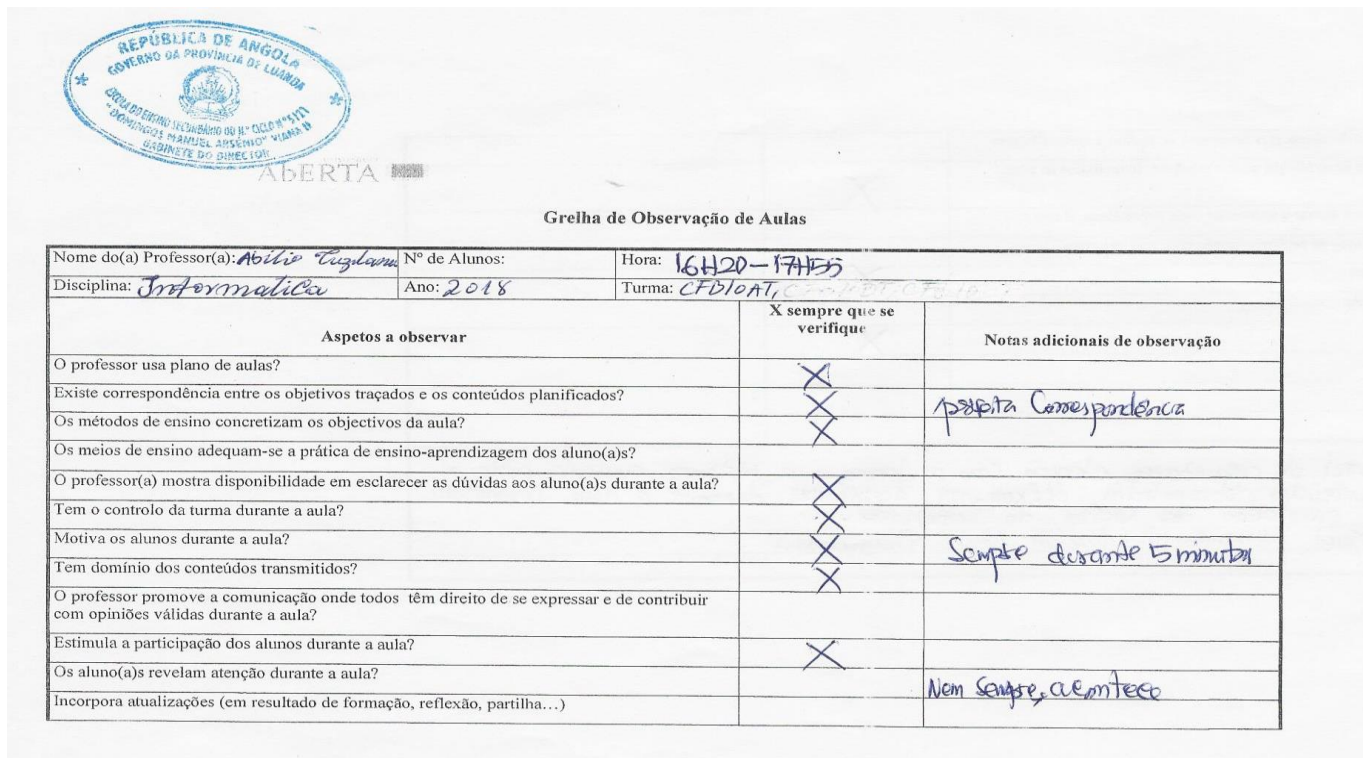 REPÚBLICA DE ANGOLA
GOVERNO DA PROVÍNCIA DE LUANDA
ESCOLA DO ENSINO SECUNDÁRIO DO II.º CICLO Nº
"DOMINGOS MANUEL ARSÉNIO" VIANA
GABINETE DO DIRECTOR
AbERTA
Grelha de Observação de Aulas
Nome do(a) Professor(a): Abílio Nº de Alunos: Hora: 16H20-17H55
Disciplina: Informatica Ano: 2018 Turma: CFB10AT,
Aspetos a observar X sempre que se verifique Notas adicionais de observação
O professor usa plano de aulas? X
Existe correspondência entre os objetivos traçados e os conteúdos planificados? X Correspondência
Os métodos de ensino concretizam os objectivos da aula? X
Os meios de ensino adequam-se a prática de ensino-aprendizagem dos aluno(a)s?
O professor(a) mostra disponibilidade em esclarecer as dúvidas aos aluno(a)s durante a aula? X
Tem o controlo da turma durante a aula? X
Motiva os alunos durante a aula? X Sempre durante 5 minutos
Tem domínio dos conteúdos transmitidos? X
O professor promove a comunicação onde todos têm direito de se expressar e de contribuir
com opiniões válidas durante a aula?
Estimula a participação dos alunos durante a aula? X
Os aluno(a)s revelam atenção durante a aula? Nem Sempre, acontece
Incorpora atualizações (em resultado de formação, reflexão, partilha…)